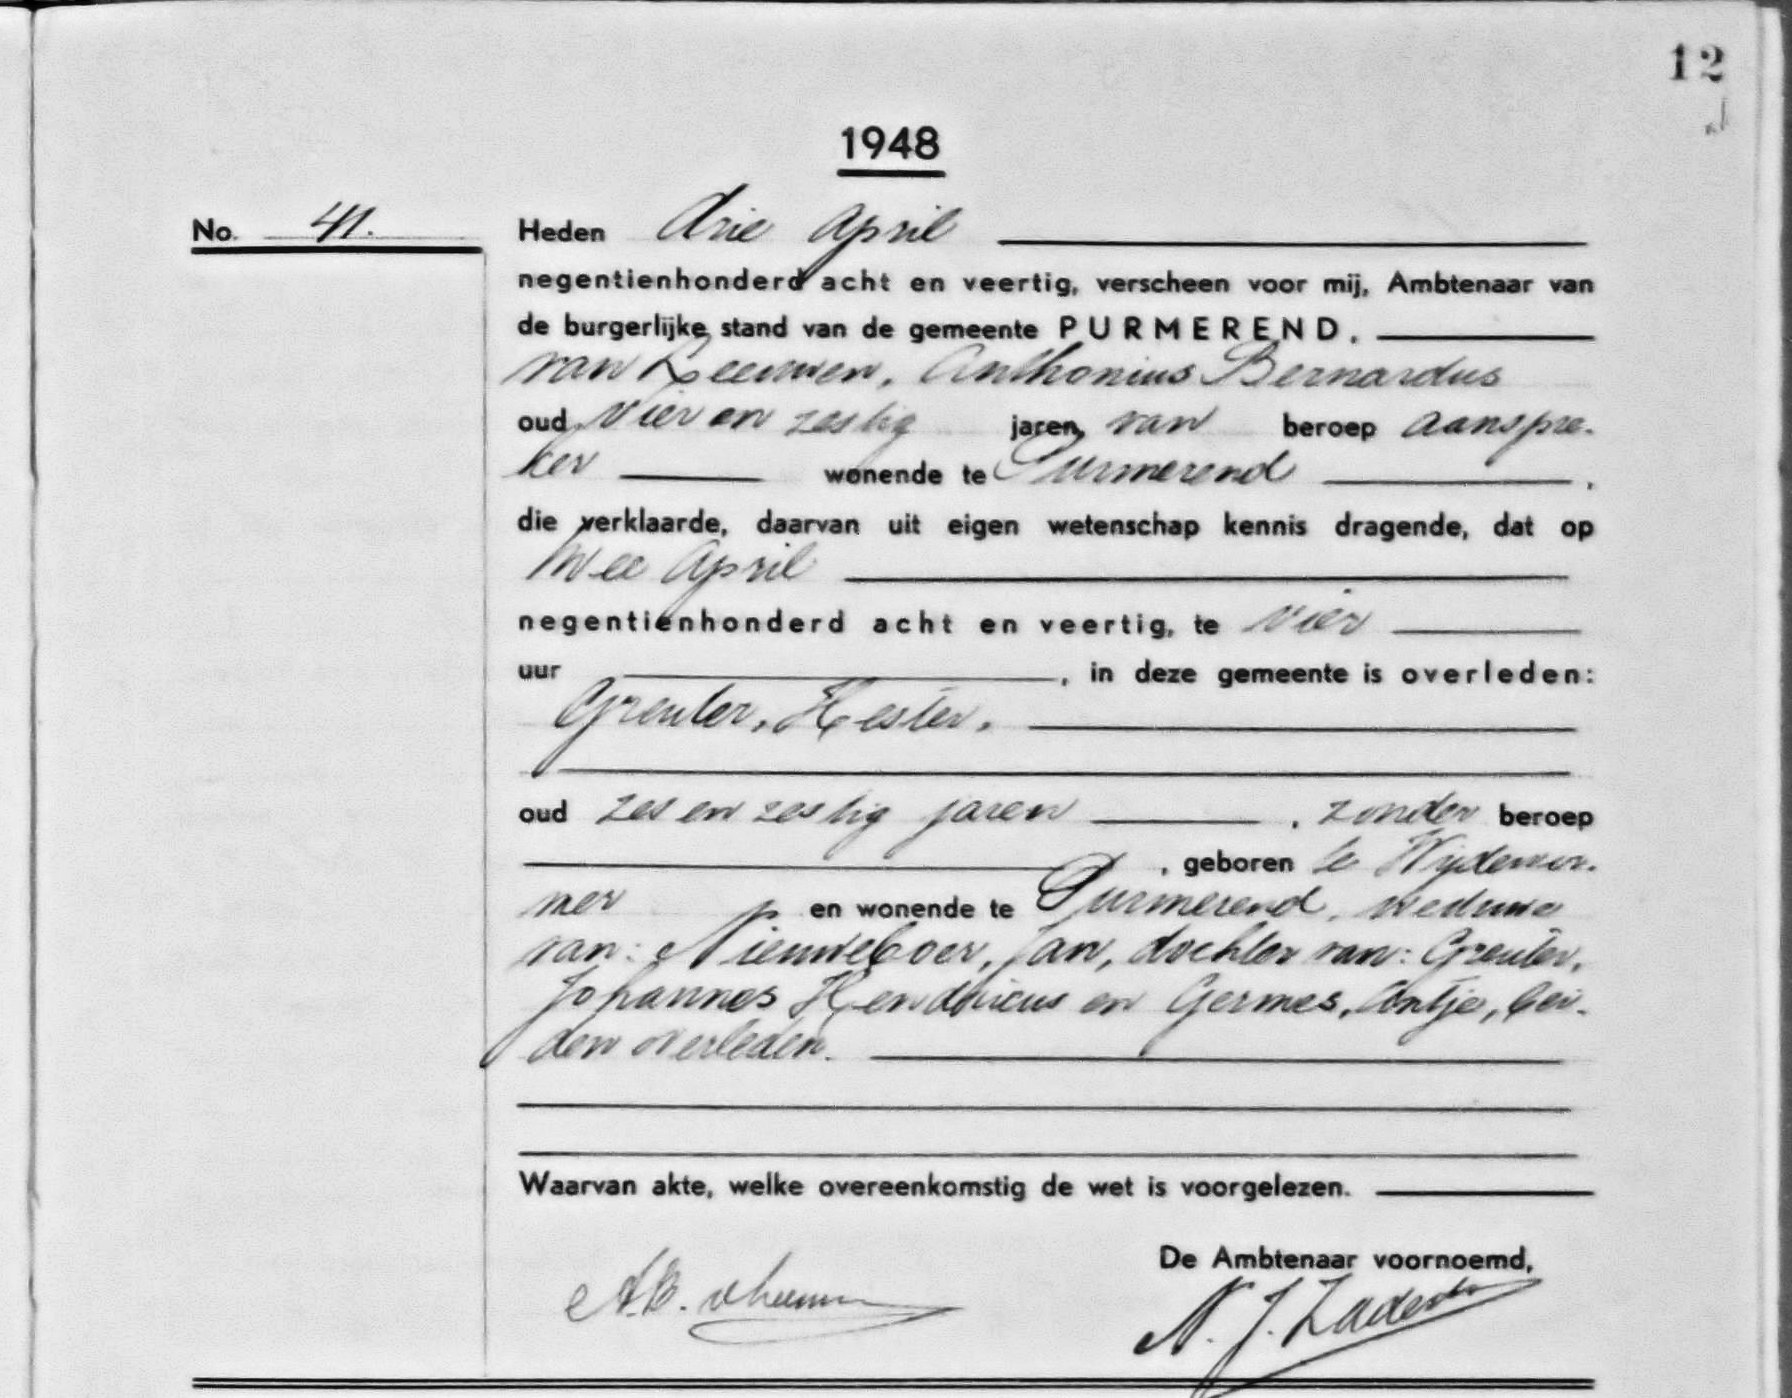 12
1948
No. 41.
Heden drie April
negentienhonderd acht en veertig, verscheen voor mij, Ambtenaar van
de burgerlijke stand van de gemeente PURMEREND,
van Leeuwen, Anthonius Bernardus
oud vier en zestig jaren, van beroep aanspre-
ker wonende te Purmerend ,
die verklaarde, daarvan uit eigen wetenschap kennis dragende, dat op
twee April
negentienhonderd acht en veertig, te vier
uur , in deze gemeente is overleden:
Greuter, Hester,
oud zes en zestig jaren , zonder beroep
, geboren te Wijdewor-
mer en wonende te Purmerend, weduwe
van: Nieuweboer, Jan, dochter van: Greuter,
Johannes Hendricus en Germes, Antje, bei-
den overleden.
Waarvan akte, welke overeenkomstig de wet is voorgelezen.
De Ambtenaar voornoemd,
A.B. v Leeuwen
N. J.